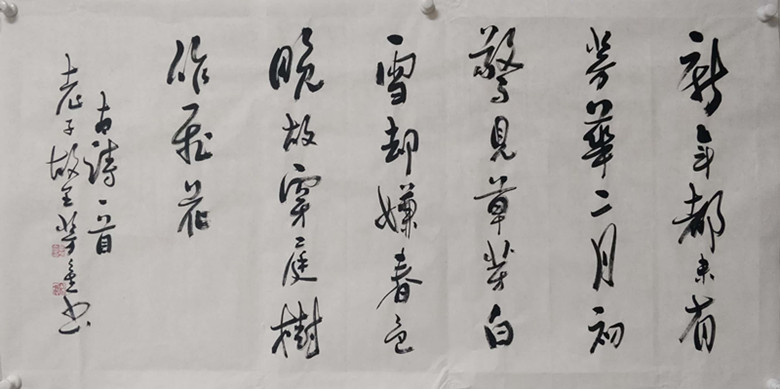 新年都未有
芳華二月初
驚見草芽白
雪却嫌春色
晚故穿庭樹
作飛花
古詩一首
老子故書